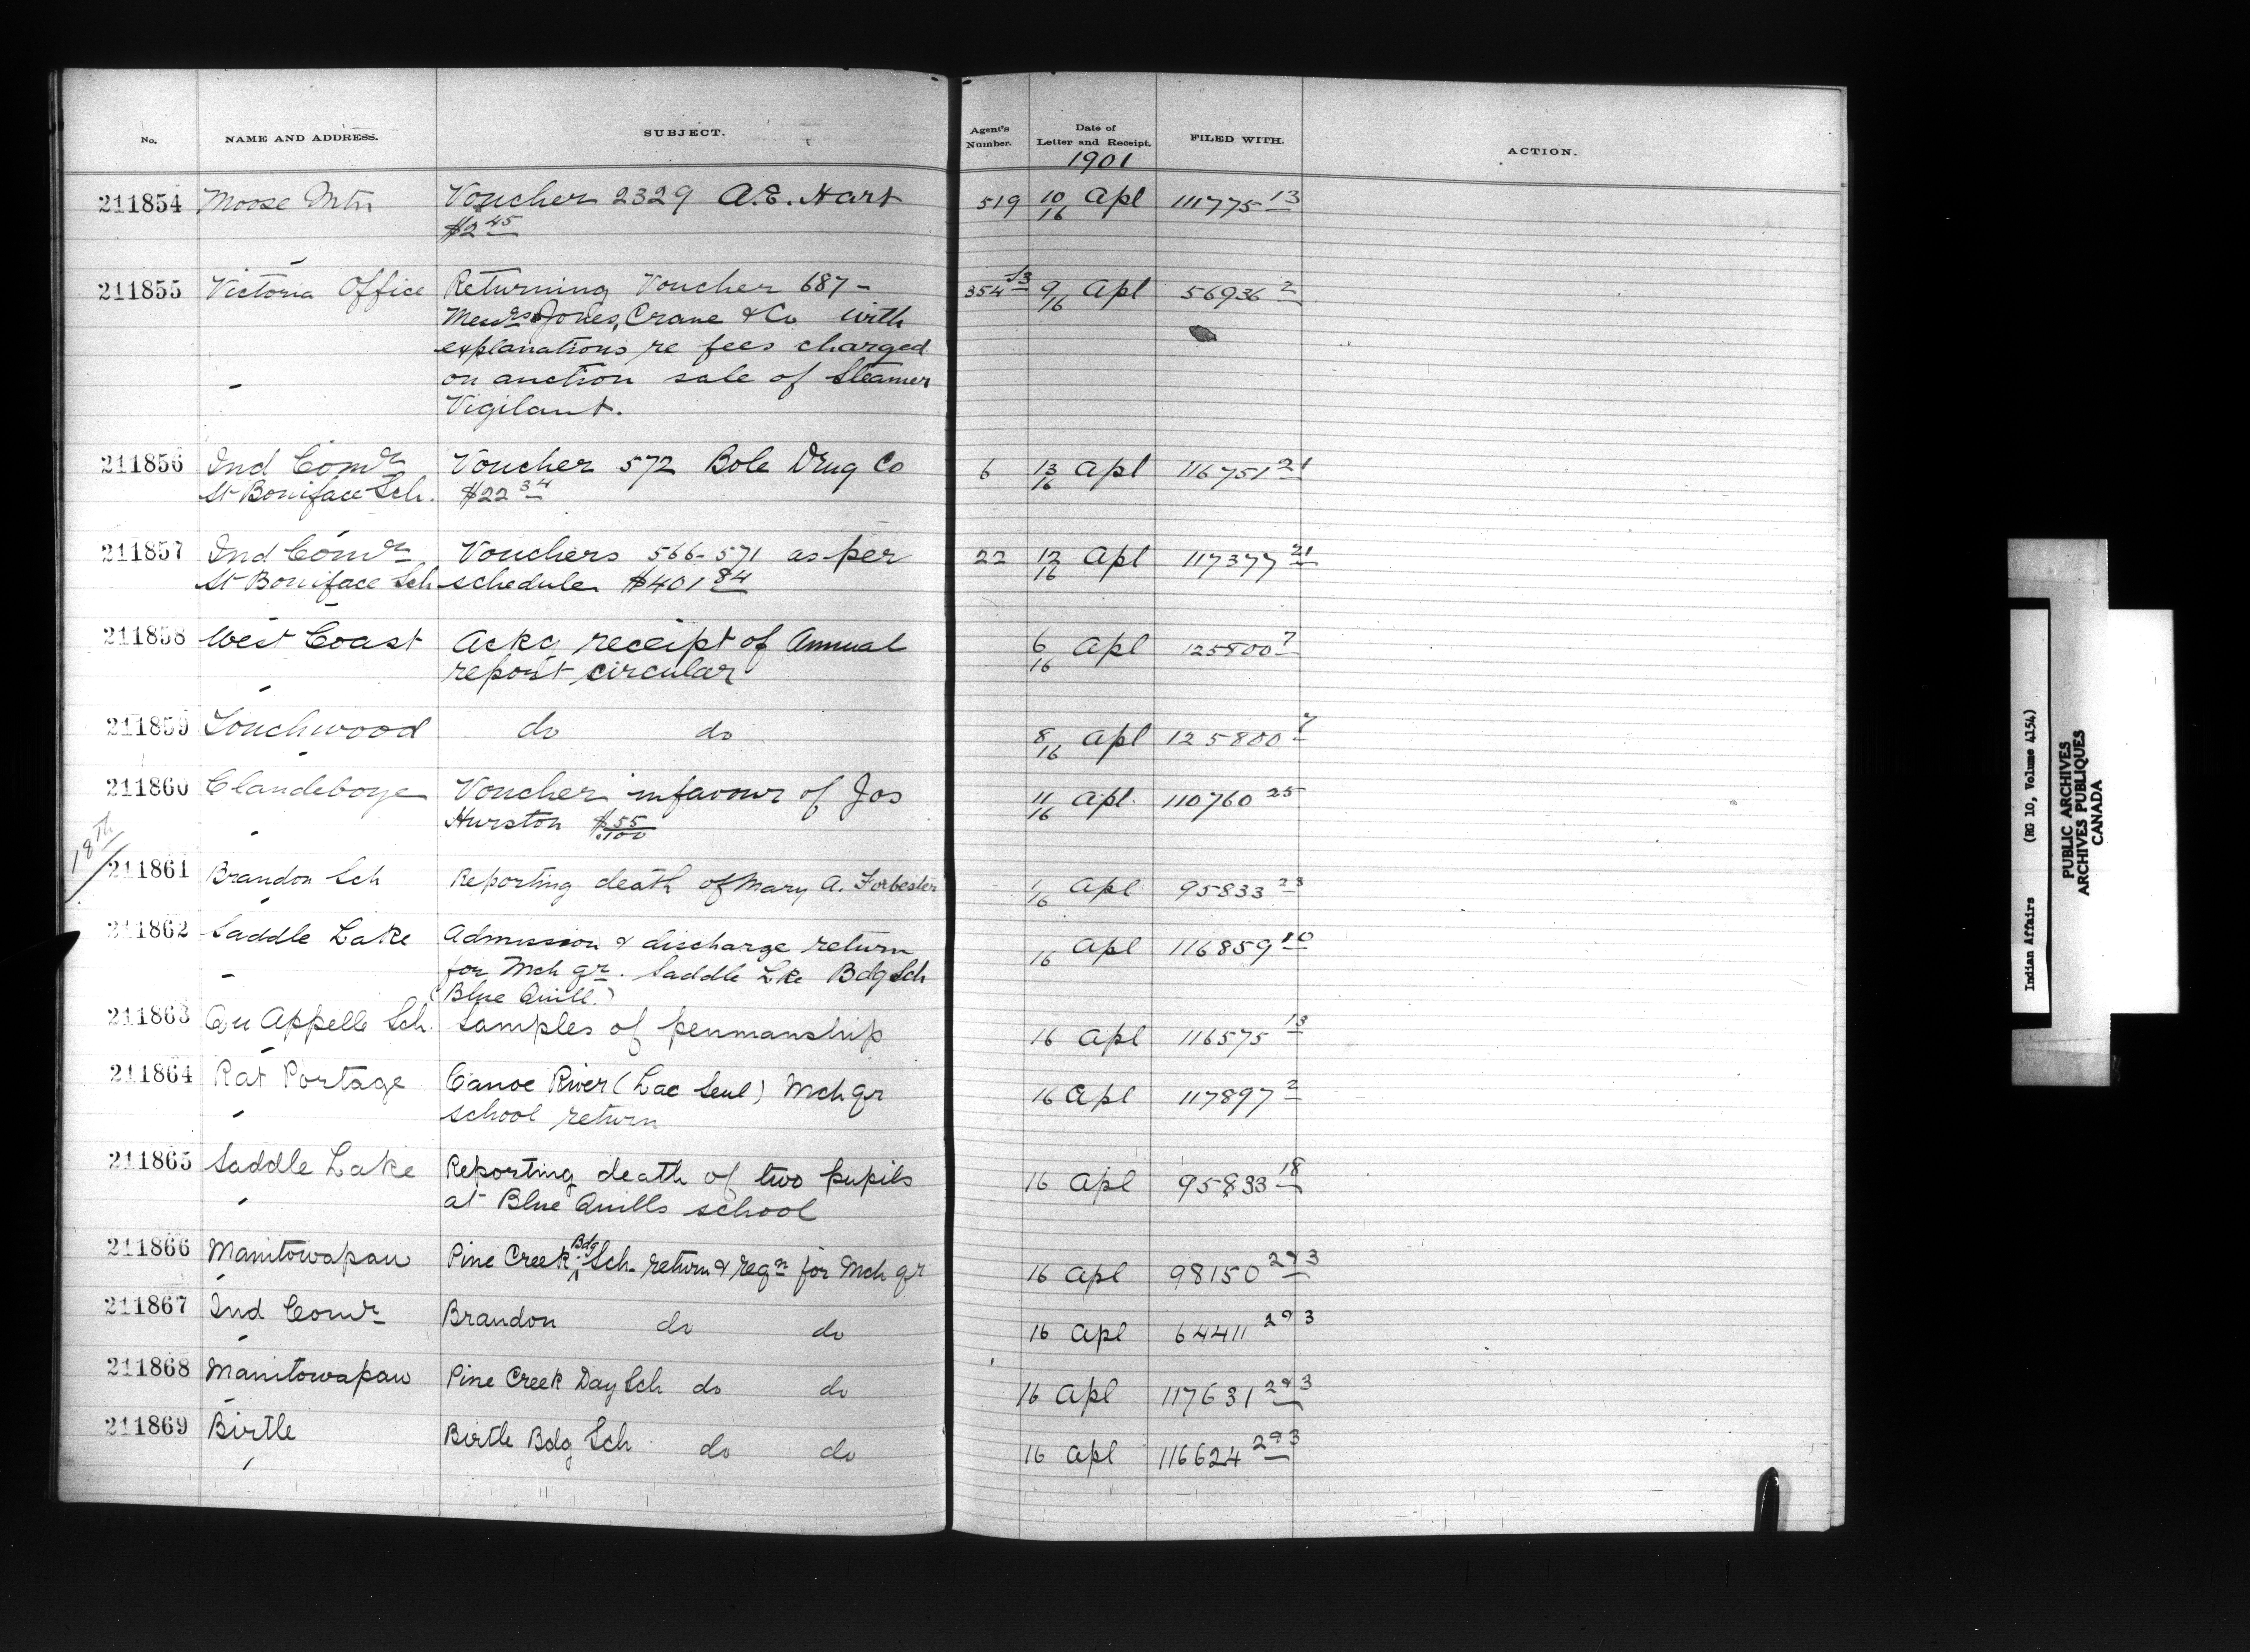 No. NAME AND ADDRESS. SUBJECT. Agent's Number. Date of Letter and Receipt. FILED WITH. ACTION.
1901
211854 Moose Mtn Voucher 2329 A.E. Hart 519 10/16 Apl 111775 13
$2 45
211855 Victoria Office Returning Voucher 687- 354 13 9/16 Apl 56936 2
Messrs Jones, Crane & Co with
explanations re fees charged
on auction sale of Steamer
Vigilant.
211856 Ind Comr Voucher 572 Bole Drug Co 6 13/16 Apl 116751 21
St Boniface Sch. $22 34
211857 Ind Comr Vouchers 566-571 as per 22 12/16 Apl 117377 21
St Boniface Sch schedule $401 84
211858 West Coast Ackg receipt of Annual 6/16 Apl 125800 7
report circular
211859 Touchwood do do 8/16 Apl 125800 7
211860 Clandeboye Voucher in favour of Jos 11/16 Apl. 110760 25
Hurston $ 55/100
18th
211861 Brandon Sch Reporting death of Mary A. Forbester 1/16 Apl 95833 23
211862 Saddle Lake Admission & discharge return 16 Apl 116859 10
for Mch qr. Saddle Lke Bdg Sch
(Blue Quill.)
211863 Qu Appelle Sch. Samples of penmanship 16 Apl 116575 13
211864 Rat Portage Canoe River (Lac Seul) Mch qr 16 Apl 117897 2
school return
211865 Saddle Lake Reporting death of two pupils 16 Apl 95833 18
at Blue Quills school
211866 Manitowapaw Pine Creek Bdg Sch. return & reqn for Mch qr 16 Apl 98150 293
211867 Ind Comr Brandon do do 16 Apl 64411 293
211868 Manitowapaw Pine Creek Day Sch do do 16 Apl 117631 293
211869 Birtle Birtle Bdg Sch do do 16 Apl 116624 293
Indian Affairs (RG 10, Volume 4154)
PUBLIC ARCHIVES
ARCHIVES PUBLIQUES
CANADA